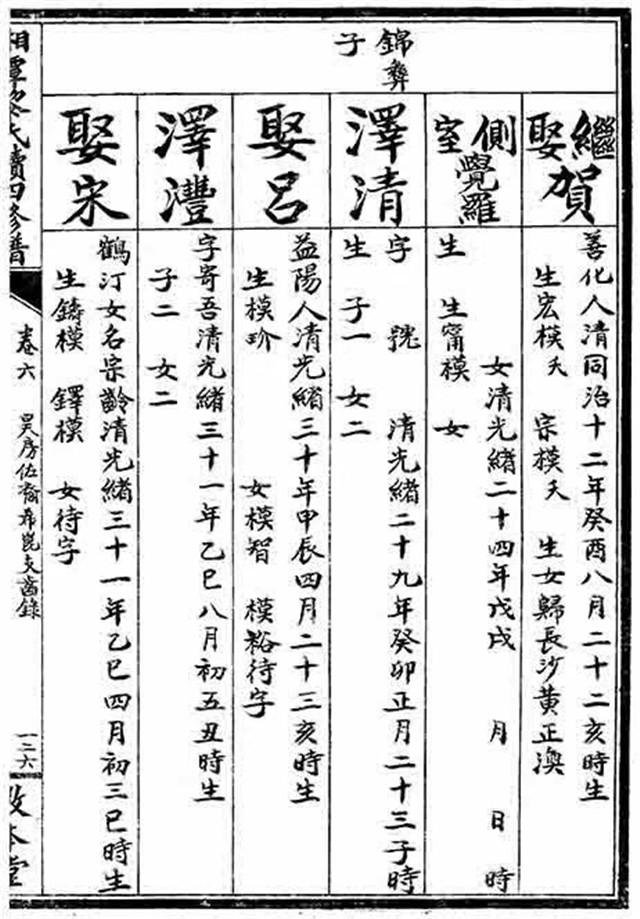 錦彝
子
繼娶賀
善化人清同治十二年癸酉八月二十二亥時生
生宏模夭 宗模夭 生女歸長沙黃正澳
側室覺羅
女清光緒二十四年戊戌 月 日 時
生 生甯模 女
澤清
字 號 清光緒二十九年癸卯正月二十三子時
生 子一 女二
娶呂
益陽人清光緒三十年甲辰四月二十三亥時生
生模玠 女模智 模裕待字
澤灃
字寄吾清光緒三十一年乙巳八月初五丑時生
子二 女二
娶宋
鶴汀女名宗齡清光緒三十一年乙巳四月初三巳時生
生鑄模 鐸模 女待字
湘潭 氏續四修譜
卷六 昊房佐裔希崑支齒錄
一二六
敦本堂